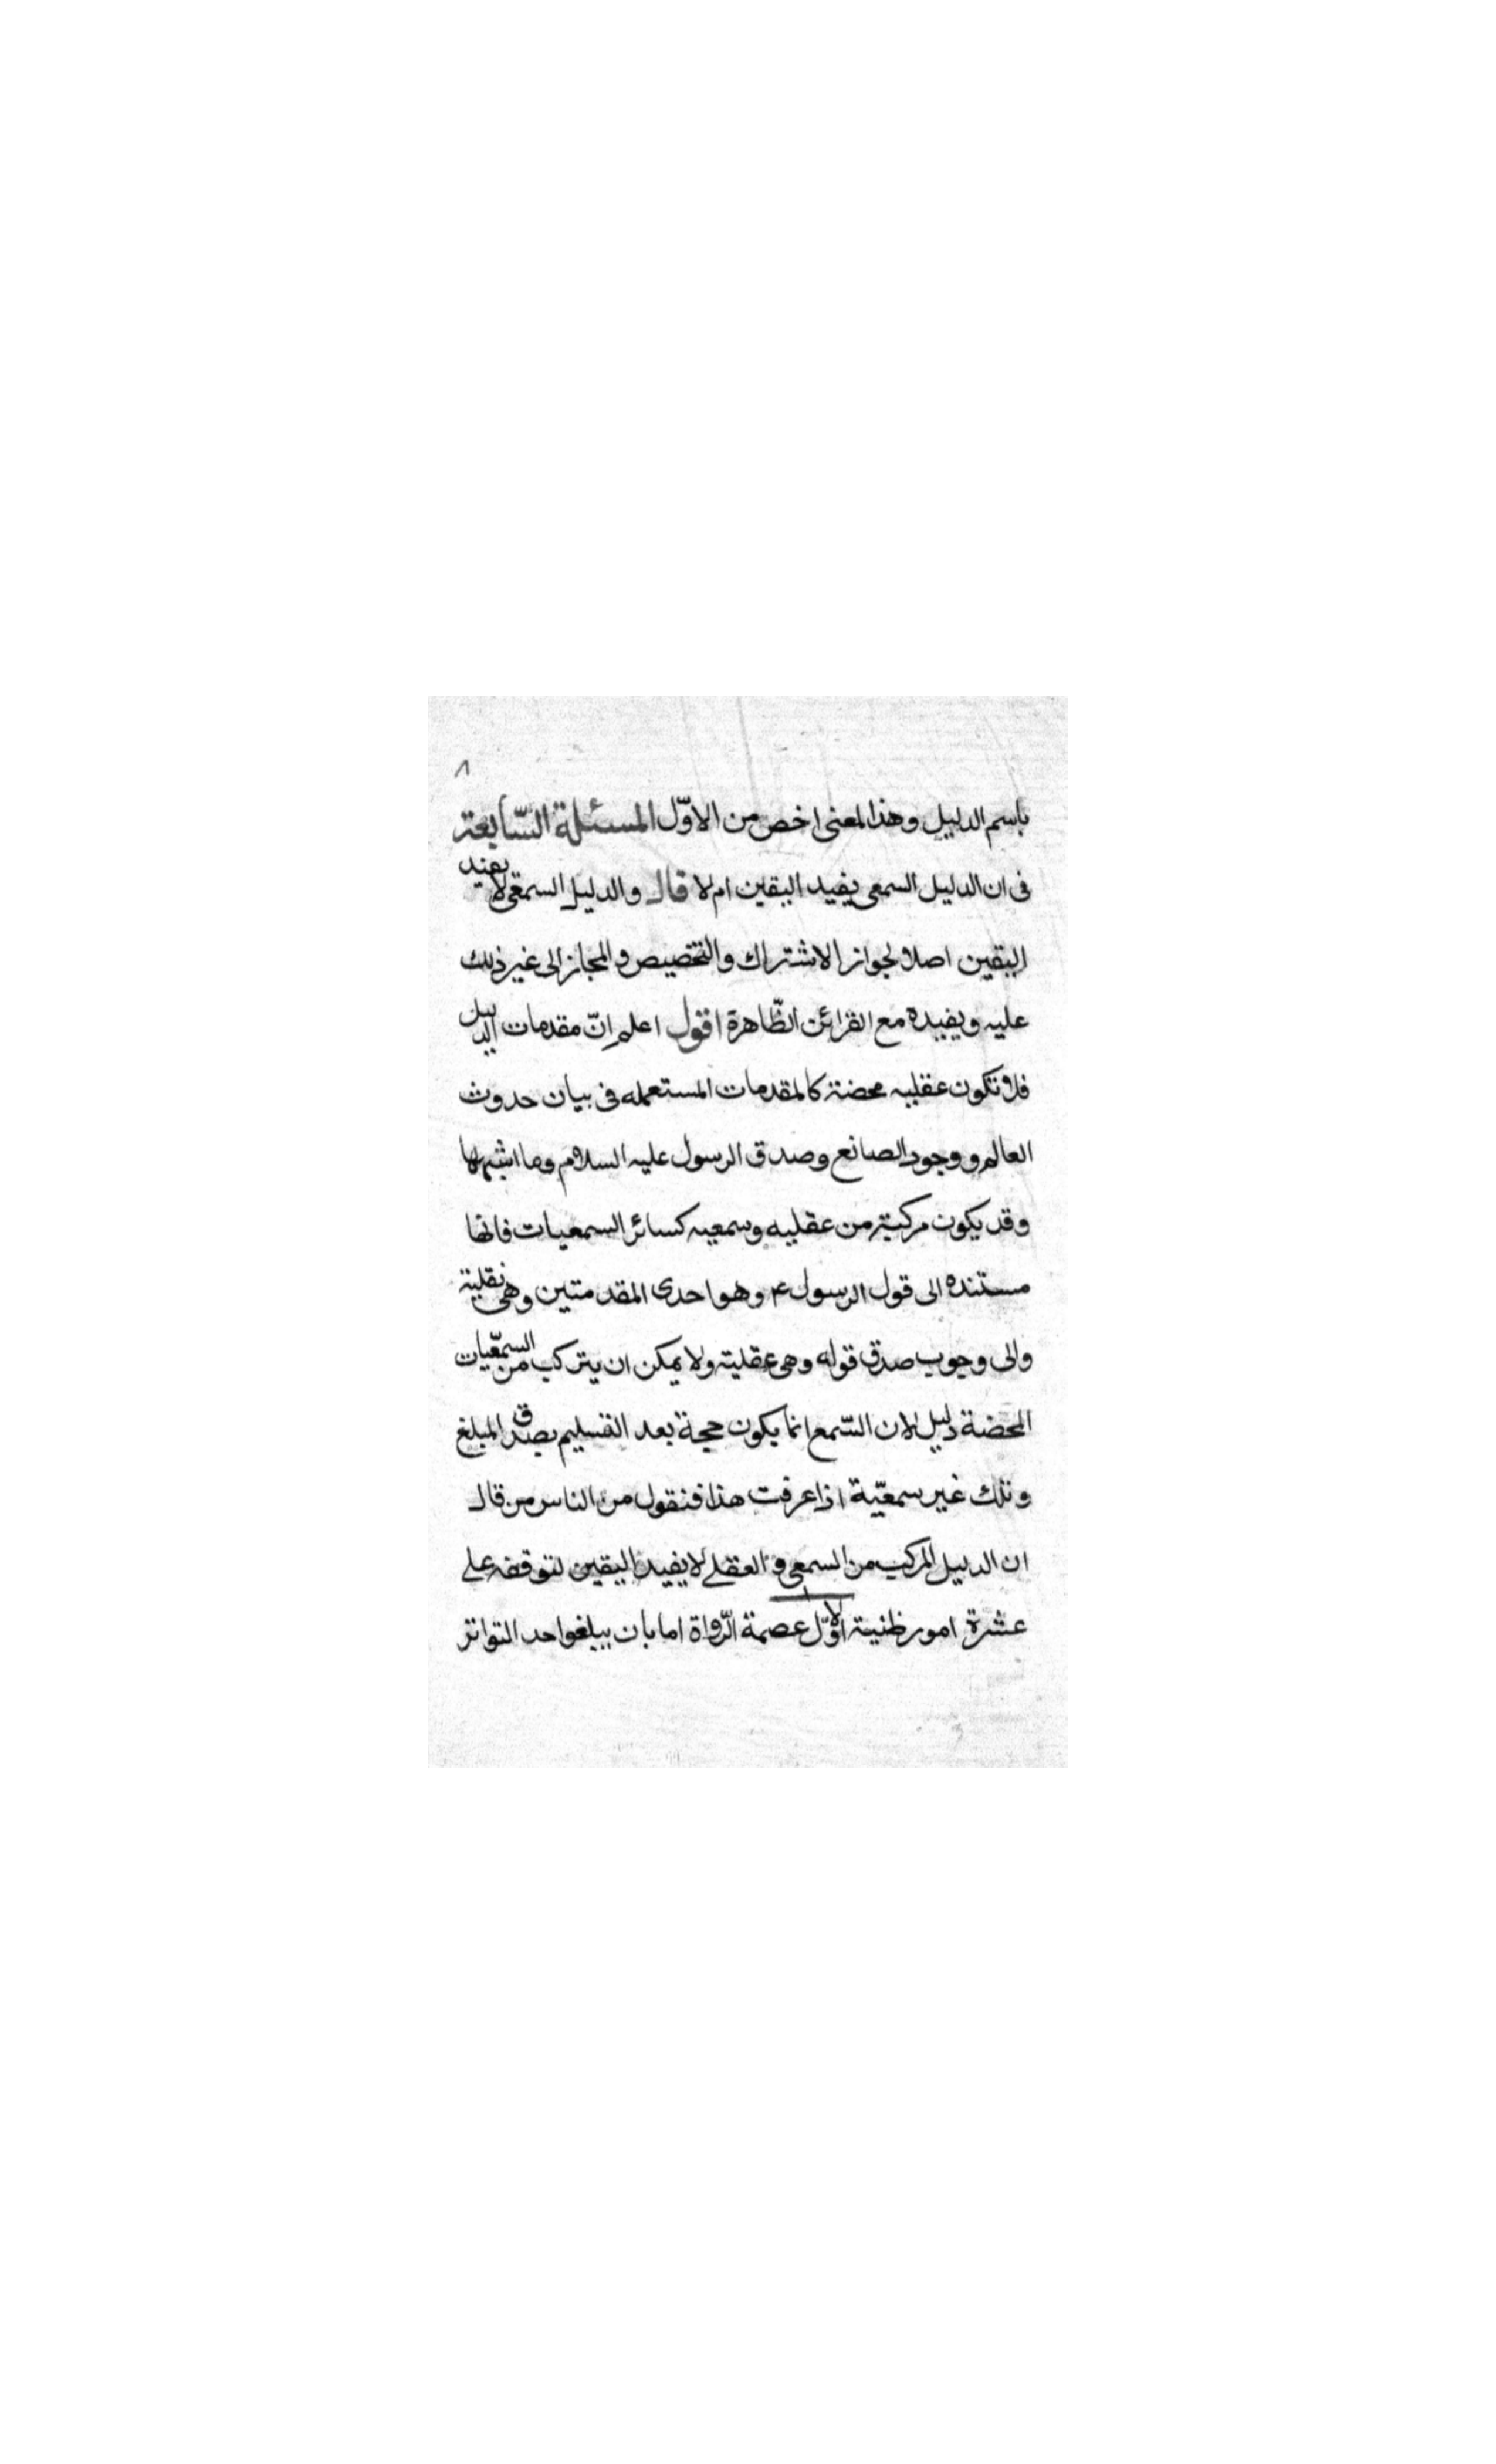 ٨
باسم الدليل وهذا المعنى اخص من الاوّل المسئلة السّابعة
فى ان الدليل السمعى يفيد اليقين ام لا قال والدليل السمعى لا يفيد
اليقين اصلا لجواز الاشتراك والتخصيص والمجاز الى غير ذلك
عليه ويفيده مع القرائن الظّاهرة اقول اعلم انّ مقدمات الدليل
قد تكون عقليه محضة كالمقدمات المستعمله فى بيان حدوث
العالم ووجود الصانع وصدق الرسول عليه السلام وما اشبهها
وقد يكون مركبة من عقليه وسمعيه كسائر السمعيات فانها
مستنده الى قول الرسول ع وهو احدى المقدمتين وهى نقلية
والى وجوب صدق قوله وهى عقلية ولا يمكن ان يتركب من السمعّيات
المحضة دليل لان السّمع انما يكون حجة بعد التسليم بصدق المبلغ
وتلك غير سمعيّة اذا عرفت هذا فنقول من الناس من قال
ان الدليل المركب من السمعى والعقلى لا يفيد اليقين لتوقفه على
عشرة امور ظنية الاوّل عصمة الرّواة اما بان يبلغوا حد التواتر